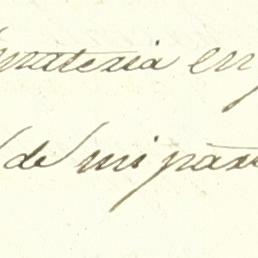 materia en
de mi par